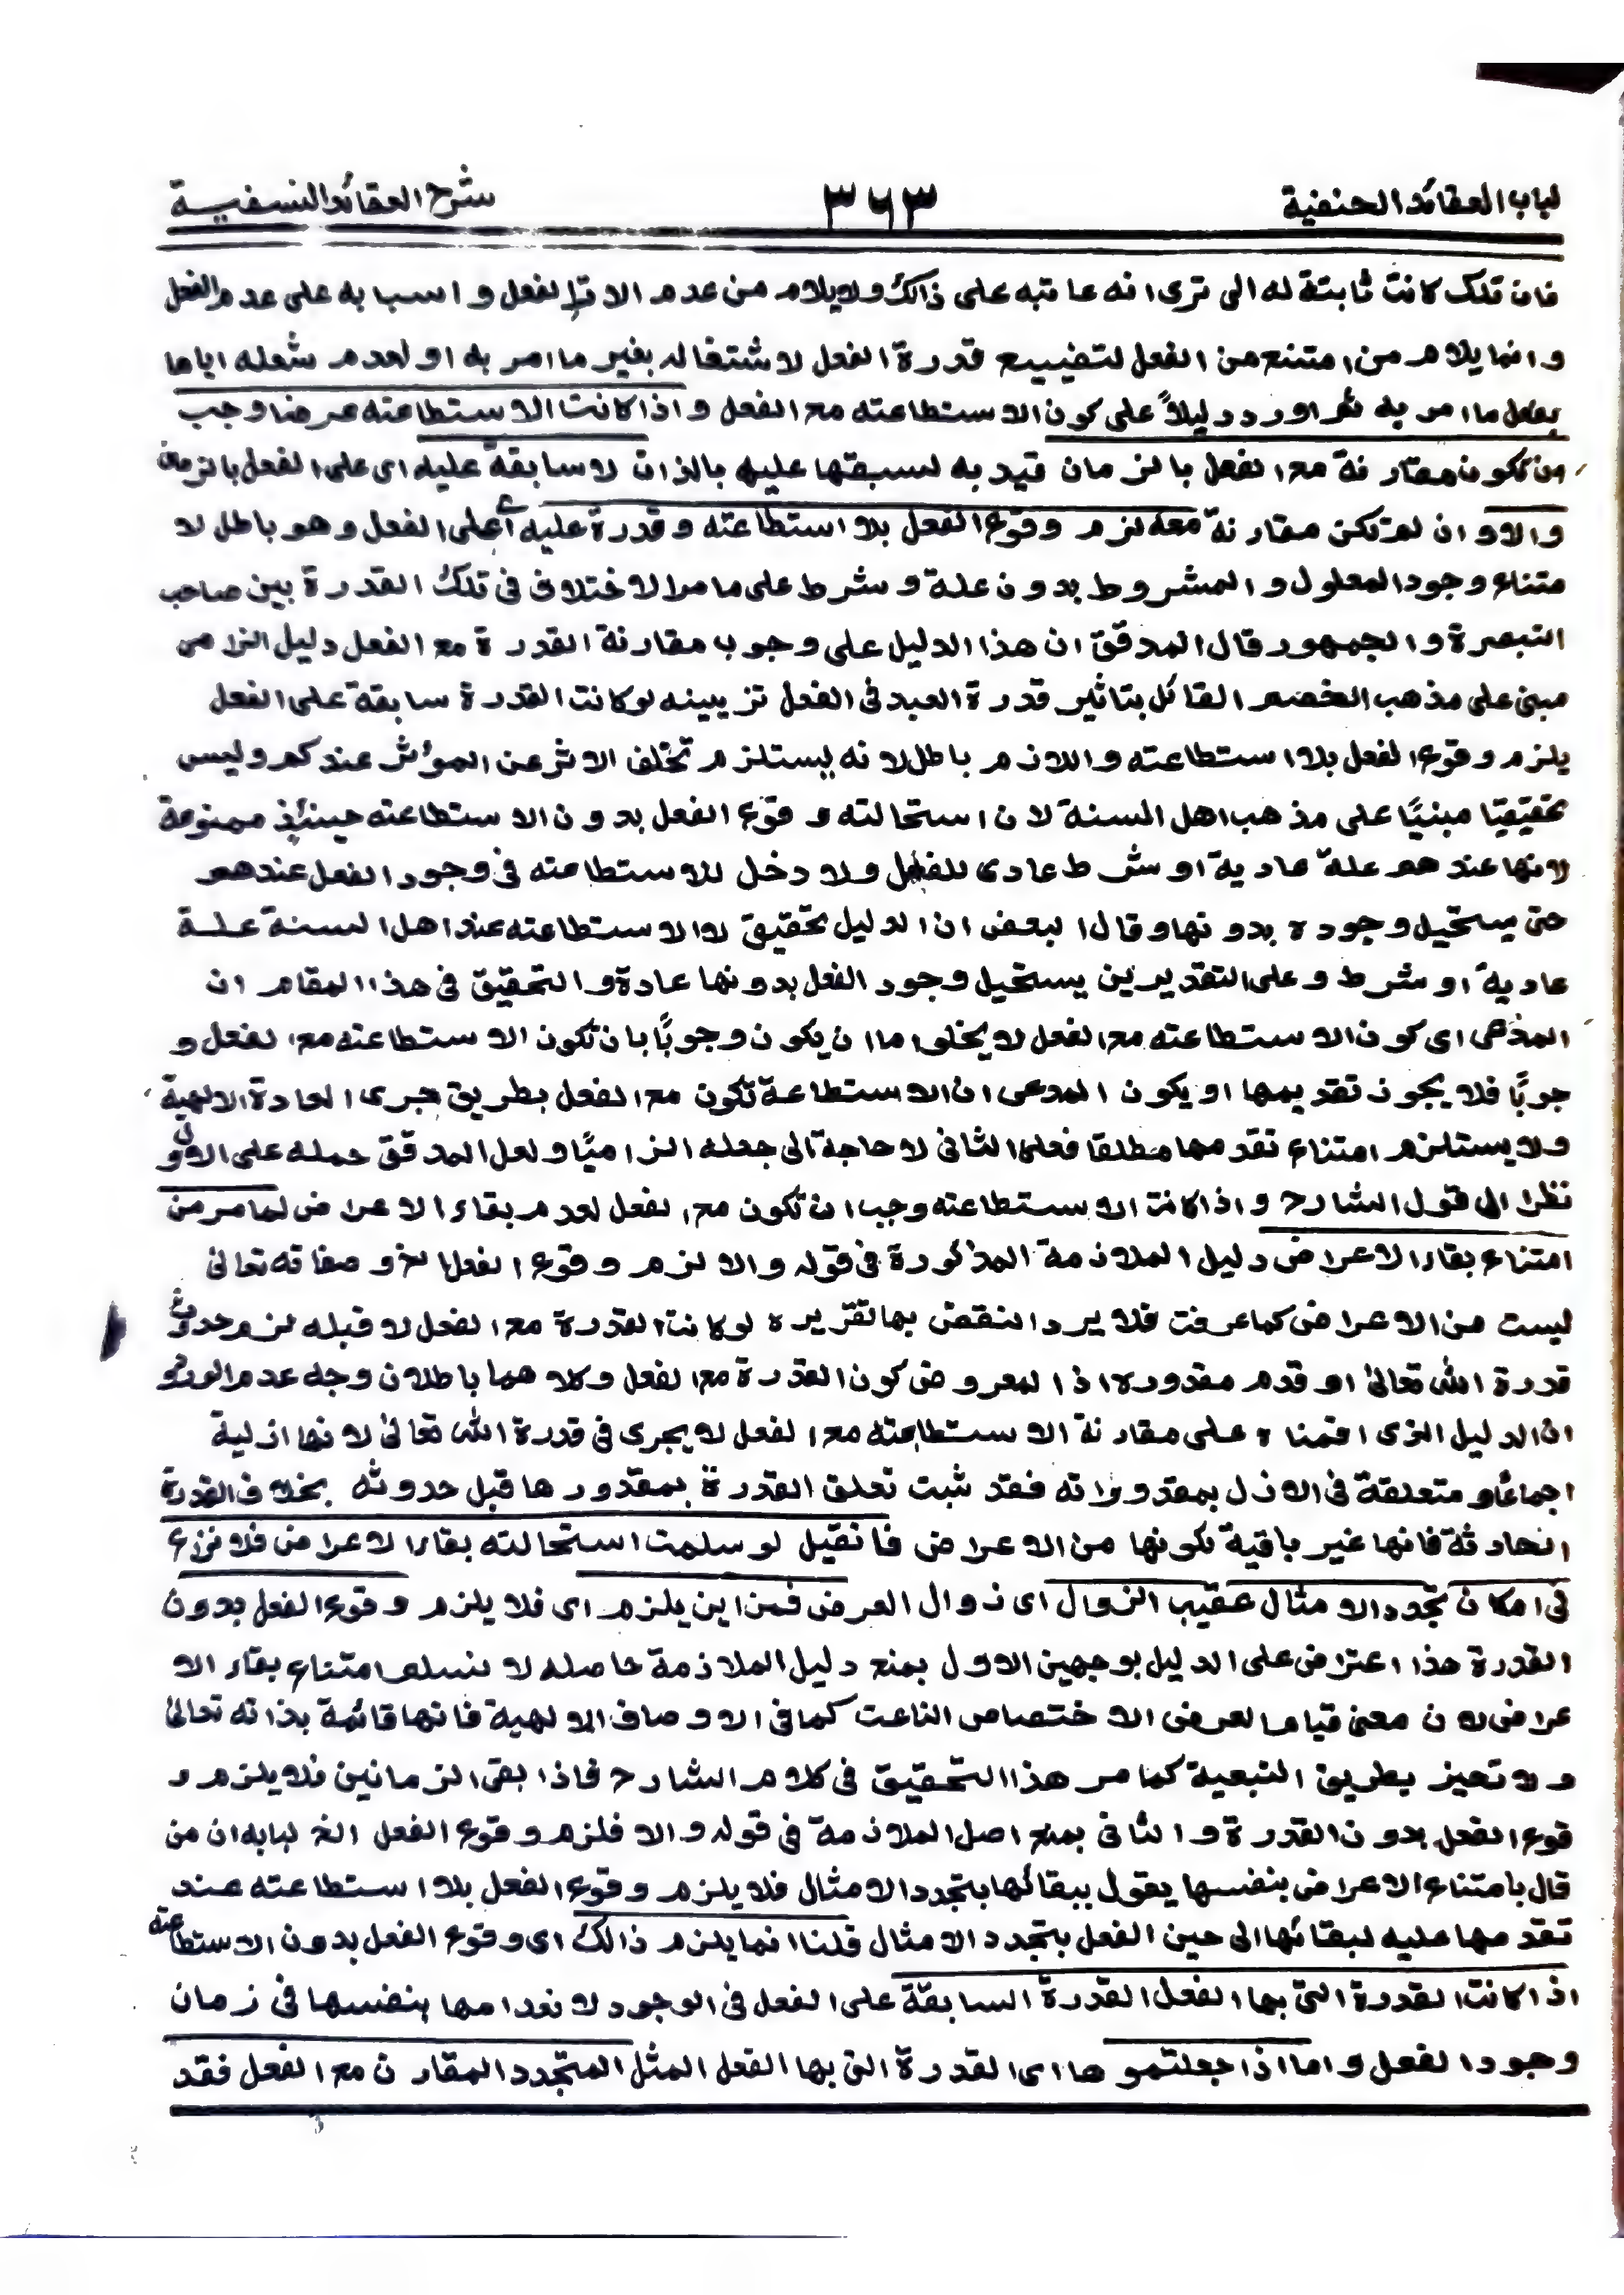 لباب العقائد الحنفية ٣٦٣ شرح العقائد النسفية
فان تلك كانت ثابتة له الى ترى انه عاتبه على ذالك ولا يلام من عدم الات الفعل واسبابه على عدم الفعل
وانما يلام من امتنع من الفعل لتضييع قدرة الفعل لاشتغاله بغير ما امر به او لعدم شغله اياها
بفعل ما امر به ثم اورد دليلاً على كون الاستطاعته مع الفعل واذا كانت الاستطاعته عرضا وجب
ان تكون مقارنة مع الفعل بالزمان قيد به لسبقها عليه بالذات لا سابقة عليه اى على الفعل بالزمان
والا وان لم تكن مقارنة معه لزم وقوع الفعل بلا استطاعته وقدرة عليه اى على الفعل وهو باطل لا
متناع وجود المعلول والمشروط بدون علة وشرط على ما مر الاختلاف فى تلك القدرة بين صاحب
التبصرة والجمهور قال المدقق ان هذا الدليل على وجوب مقارنة القدرة مع الفعل دليل الزامى
مبنى على مذهب الخصم القائل بتاثير قدرة العبد فى الفعل تزيينه لو كانت القدرة سابقة على الفعل
يلزم وقوع الفعل بلا استطاعته واللازم باطل لانه يستلزم تخلف الاثر عن المؤثر عندكم وليس
تحقيقيا مبنيًا على مذهب اهل السنة لان استحالته وقوع الفعل بدون الاستطاعته حينئذ ممنوعة
لانها عندهم علة عادية او شرط عادى للفعل ولا دخل للاستطاعته فى وجود الفعل عندهم
حتى يستحيل وجوده بدونها وقال البعض ان الدليل تحقيقى لا والاستطاعته عند اهل السنة علة
عادية او شرط وعلى التقديرين يستحيل وجود الفعل بدونها عادة والتحقيق فى هذا المقام ان
المدعى اى كون الاستطاعته مع الفعل لا يخلو اما ان يكون وجوبًا بان تكون الاستطاعته مع الفعل و
جوبًا فلا يجوز تقديمها او يكون المدعى ان الاستطاعة تكون مع الفعل بطريق جرى العادة الالهية
ولا يستلزم امتناع تقدمها مطلقا فعلى الثانى لا حاجة الى جعله الزاميًا ولعل المدقق حمله على الاول
نظرا الى قول الشارح واذا كانت الاستطاعته وجب ان تكون مع الفعل لعدم بقاء الاعراض لما مر من
امتناع بقاء الاعراض دليل الملازمة المذكورة فى قوله والا لزم وقوع الفعل الخ وصفاته تعالى
ليست من الاعراض كما عرفت فلا يرد النقض بها تقريره لو كانت القدرة مع الفعل لا قبله لزم حدوث
قدرة الله تعالى او قدم مقدوره اذ المعروض كون القدرة مع الفعل وكلاهما باطلان وجه عدم الورود
ان الدليل الذى اقمناه على مقارنة الاستطاعته مع الفعل لا يجرى فى قدرة الله تعالى لانها ازلية
اجماعًا و متعلقة فى الازل بمقدوراته فقد ثبت تعلق القدرة بمقدورها قبل حدوثه بخلاف القدرة
الحادثة فانها غير باقية لكونها من الاعراض فانقيل لو سلمت استحالته بقاء الاعراض فلا نزاع
فى امكان تجدد الامثال عقيب الزوال اى زوال العرض فمن اين يلزم اى فلا يلزم وقوع الفعل بدون
القدرة هذا اعتراض على الدليل بوجهين الاول بمنع دليل الملازمة حاصله لا نسلم امتناع بقاء الا
عراض لان معنى قيام العرض الاختصاص الناعت كما فى الاوصاف الالهية فانها قائمة بذاته تعالى
ولا تحيز بطريق التبعية كما مر هذا التحقيق فى كلام الشارح فاذا بقى الزمانين فلا يلزم و
قوع الفعل بدون القدرة والثانى بمنع اصل الملازمة فى قوله والا فلزم وقوع الفعل الخ لبابه ان من
قال بامتناع الاعراض بنفسها يقول ببقائها بتجدد الامثال فلا يلزم وقوع الفعل بلا استطاعته عند
تقدمها عليه لبقائها الى حين الفعل بتجدد الامثال قلنا انما يلزم ذالك اى وقوع الفعل بدون الاستطاعته
اذا كانت القدرة التى بها الفعل القدرة السابقة على الفعل فى الوجود لانعدامها بنفسها فى زمان
وجود الفعل واما اذا جعلتموها اى القدرة التى بها الفعل المثل المتجدد المقارن مع الفعل فقد